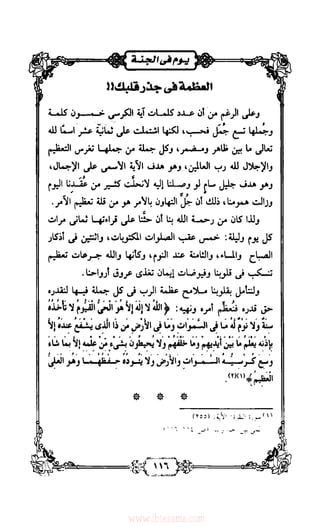 يوم في الجنة
العظمة في جذر قلبك!!
وعلى الرغم من أن عدد كلمات آية الكرسي خمسون كلمة
وجملها تسع جُمَل فحسب، لكنها اشتملت على ثمانية عشر اسمًا لله
تعالى ما بين ظاهر ومضمر، وكل جملة من جملها تغرس التعظيم
والإجلال لله رب العالمين، وهو هدف الآية الأسمى على الإجمال،
وهو هدف جليل سام لو وصلنا إليه لانحلَّت كثير من عُقَدِنا اليوم
وزالت همومنا، ذلك أن جُلَّ التهاون بالأمر هو من قلة تعظيم الآمر.
ولذا كان من رحمة الله بنا أن حثَّنا على قراءتها على ثماني مرات
كل يوم وليلة: خمس عقب الصلوات المكتوبات، واثنتين في أذكار
الصباح والمساء، والثامنة عند النوم، وكأنها والله جرعات تعظيم
تنسكب في قلوبنا وفيوضات إيمان تغذي عروق أرواحنا.
ولنتأمل بقلوبنا ملامح عظمة الرب في كل جملة فيها لنقدره
حق قدره فنُعظِّم أمره ونهيه: ﴿اللَّهُ لا إِلَهَ إِلاَّ هُوَ الْحَيُّ الْقَيُّومُ لا تَأْخُذُهُ
سِنَةٌ وَلا نَوْمٌ لَهُ مَا فِي السَّمَوَاتِ وَمَا فِي الأَرْضِ مَن ذَا الَّذِي يَشْفَعُ عِندَهُ إِلاَّ
بِإِذْنِهِ يَعْلَمُ مَا بَيْنَ أَيْدِيهِمْ وَمَا خَلْفَهُمْ وَلا يُحِيطُونَ بِشَيْءٍ مِّنْ عِلْمِهِ إِلاَّ بِمَا شَاءَ
وَسِعَ كُرْسِيُّهُ السَّمَوَاتِ وَالأَرْضَ وَلا يَئُودُهُ حِفْظُهُمَا وَهُوَ الْعَلِيُّ
الْعَظِيمُ﴾(١)(٢)
* * *
(١) سورة البقرة: الآية: (٢٥٥)
١١٦
www.ibtesama.com